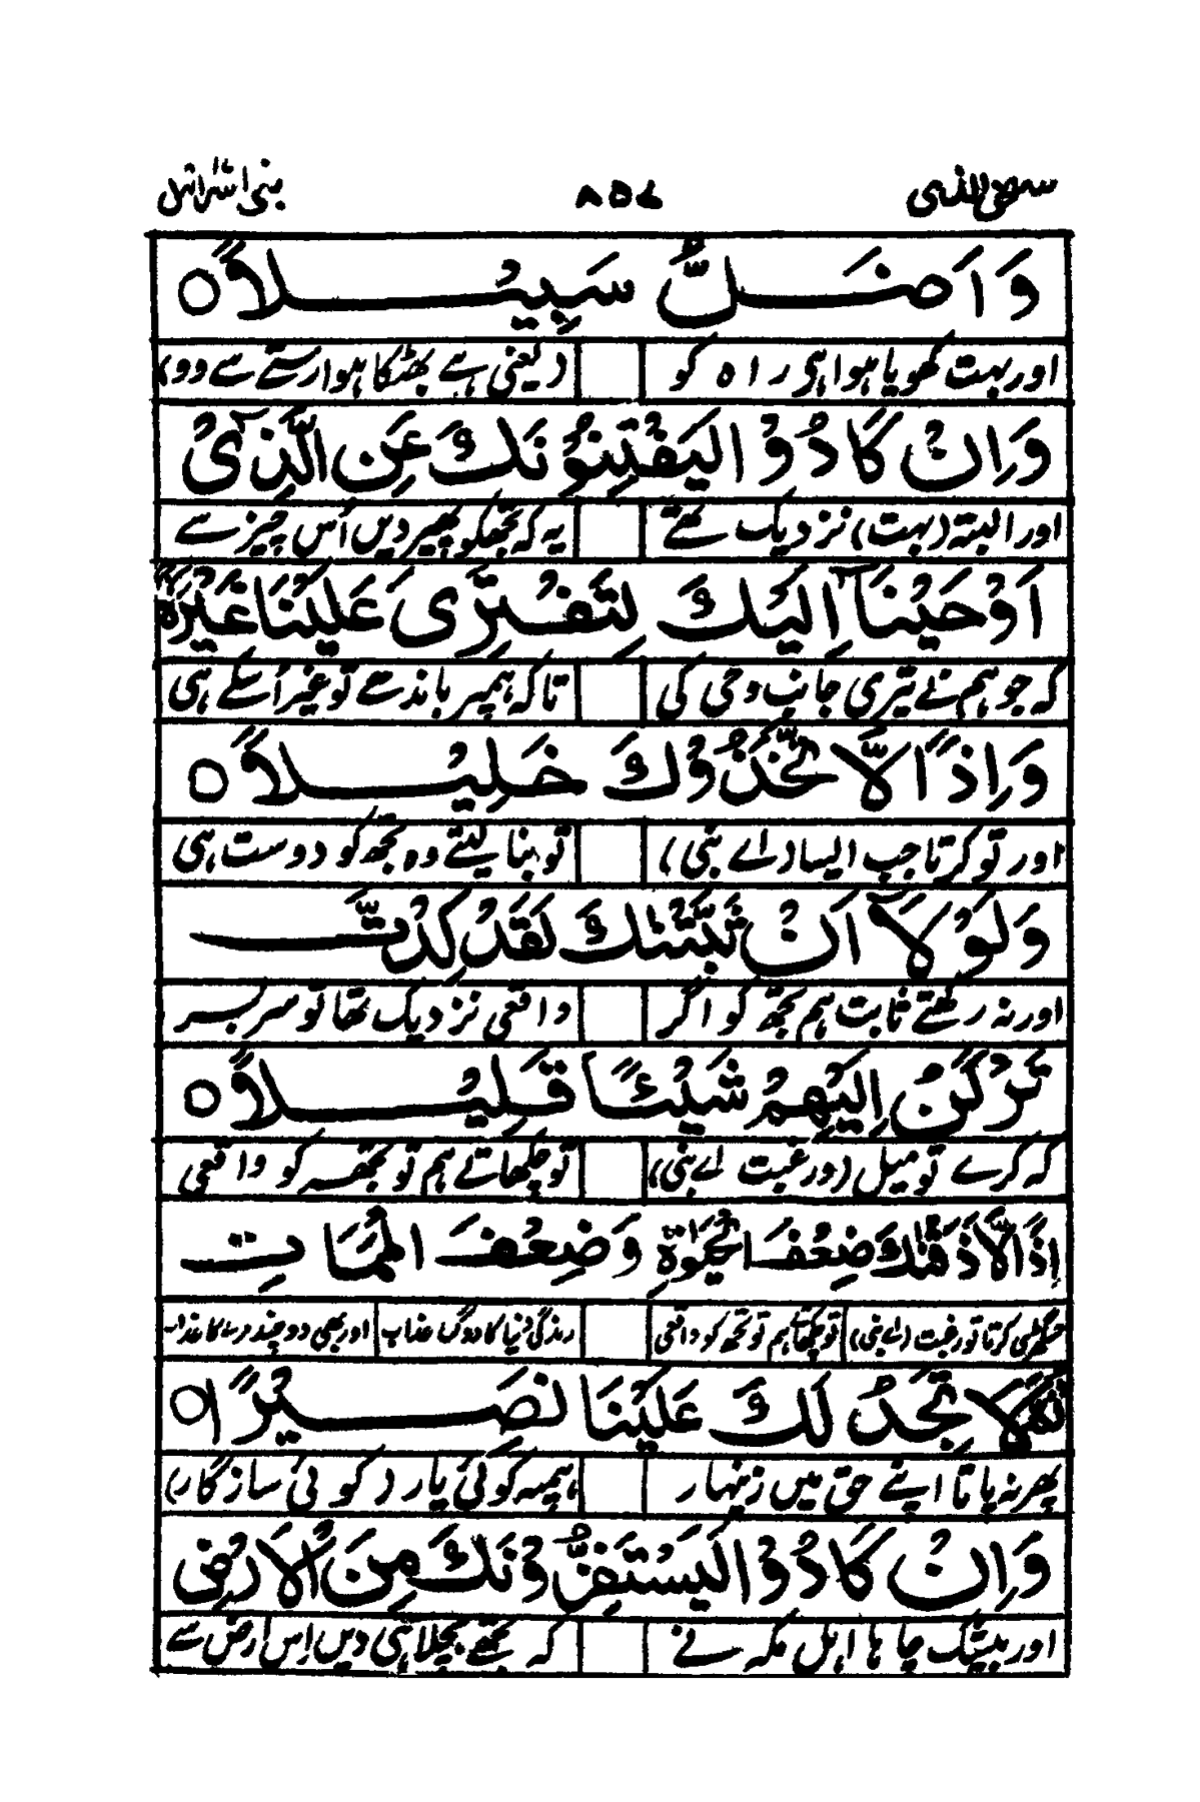 سبحٰن الذی ۸۵۷ بنی اسرائیل
وَاَضَلُّ سَبِيْلًا ○
اور بہت کھویا ہوا ہی راہ کو (یعنی ہے بھٹکا ہوا رستے سے دور)
وَاِنْ كَادُوْا لَيَفْتِنُوْنَكَ عَنِ الَّذِيْٓ
اور البتہ (بہت) نزدیک تھے یہ کہ تجھکو پھیر دیں اُس چیز سے
اَوْحَيْنَآ اِلَيْكَ لِتَفْتَرِيَ عَلَيْنَا غَيْرَهٗ
کہ جو ہم نے تیری جانب وحی کی تاکہ ہمپر باندھے تو غیر اُسکے ہی
وَاِذًا لَّاتَّخَذُوْكَ خَلِيْلًا ○
اور تو کرتا جب ایسا (اے نبی) تو بنا لیتے وہ تجھ کو دوست ہی
وَلَوْلَآ اَنْ ثَبَّتْنٰكَ لَقَدْ كِدْتَّ
اور نہ رکھتے ثابت ہم تجھ کو اگر واقعی نزدیک تھا تو سربسر
تَرْكَنُ اِلَيْهِمْ شَيْئًا قَلِيْلًا ○
کہ کرے تو میل (و رغبت اے نبی) تو چکھاتے ہم تو تجھسہ کو واقعی
اِذًا لَّاَذَقْنٰكَ ضِعْفَ الْحَيٰوةِ وَضِعْفَ الْمَمَاتِ
کرتا تو رغبت (اے نبی) تو چکھاتے ہم تو تجھ کو واقعی زندگی دنیا کا دوگنا عذاب اور بھی دو چند مرے کا عذاب
ثُمَّ لَا تَجِدُ لَكَ عَلَيْنَا نَصِيْرًا ○
پھر نہ پاتا اپنے حق میں زینہار ہمپہ کوئی یار (کوئی سازگار)
وَاِنْ كَادُوْا لَيَسْتَفِزُّوْنَكَ مِنَ الْاَرْضِ
اور بیشک چاہا اہل مکہ نے کہ تجھے بچلا ہی دیں اِس ارض سے